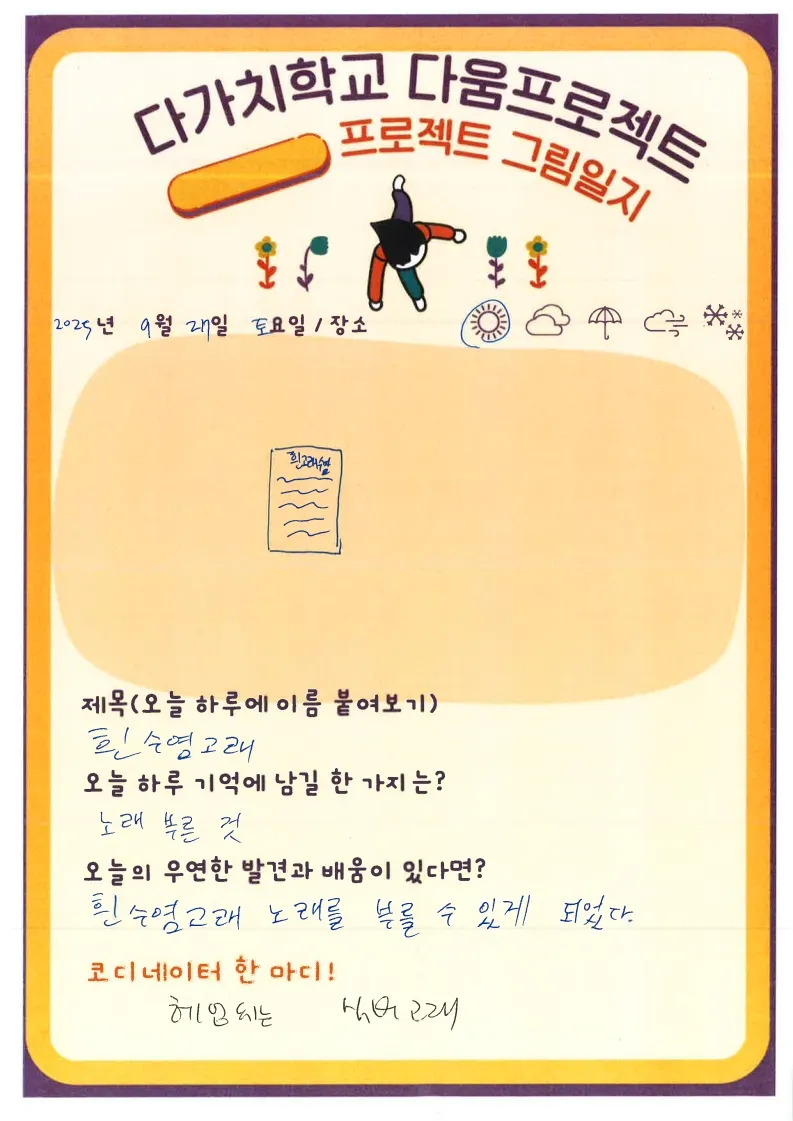 다가치학교 다움프로젝트
프로젝트 그림일지
2025년 9월 27일 토요일 / 장소
흰고래수염
제목(오늘 하루에 이름 붙여보기)
흰수염고래
오늘 하루 기억에 남길 한 가지는?
노래 부른 것
오늘의 우연한 발견과 배움이 있다면?
흰수염고래 노래를 부를 수 있게 되었다.
코디네이터 한 마디!
고래